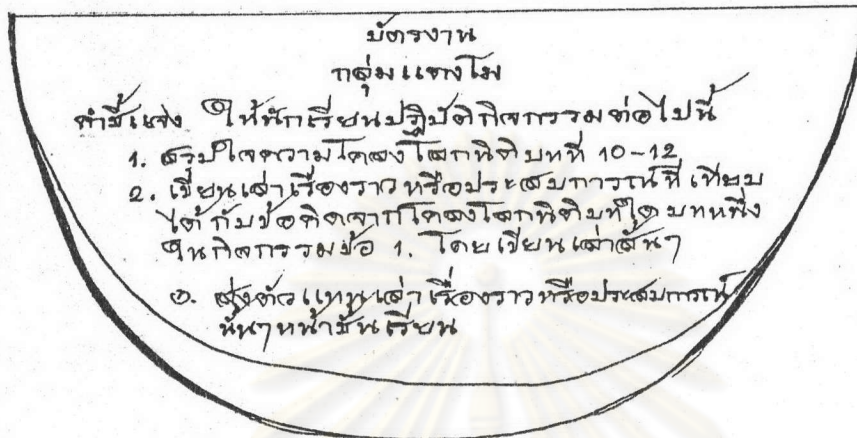 บัตรงาน
กลุ่มแตงโม
คำชี้แจง ให้นักเรียนปฏิบัติกิจกรรมต่อไปนี้
1. สรุปใจความโคลงโลกนิติบทที่ 10-12
2. เขียนเล่าเรื่องราวหรือประสบการณ์ที่เทียบ
ได้กับข้อคิดจากโคลงโลกนิติบทใดบทหนึ่ง
ในกิจกรรมข้อ 1. โดยเขียนเล่าสั้นๆ
๓. ส่งตัวแทนเล่าเรื่องราวหรือประสบการณ์
นั้นๆหน้าชั้นเรียน